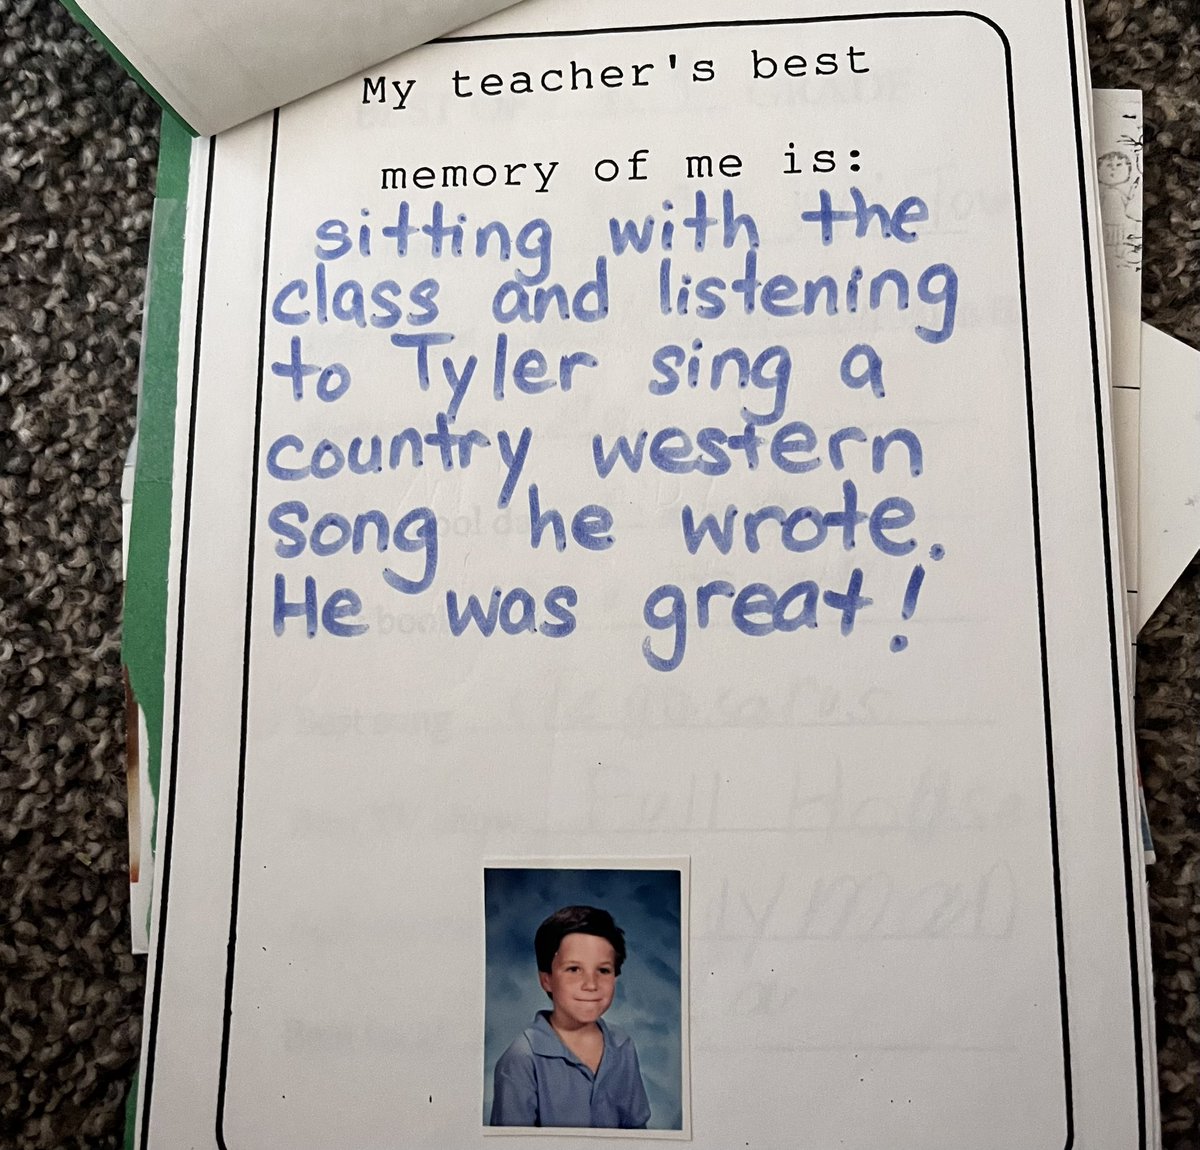 My teacher's best
memory of me is:
sitting with the
class and listening
to Tyler sing a
country western
song he wrote.
He was great!